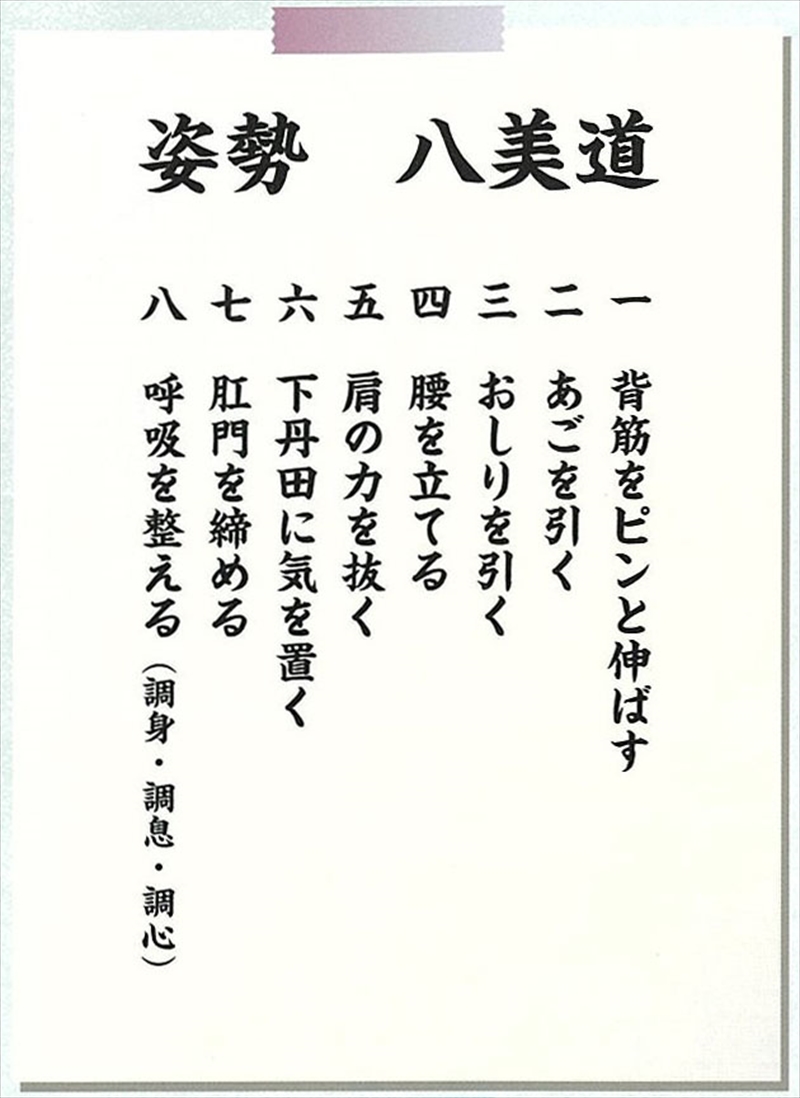 姿勢　八美道
一　背筋をピンと伸ばす
二　あごを引く
三　おしりを引く
四　腰を立てる
五　肩の力を抜く
六　下丹田に気を置く
七　肛門を締める
八　呼吸を整える（調身・調息・調心）